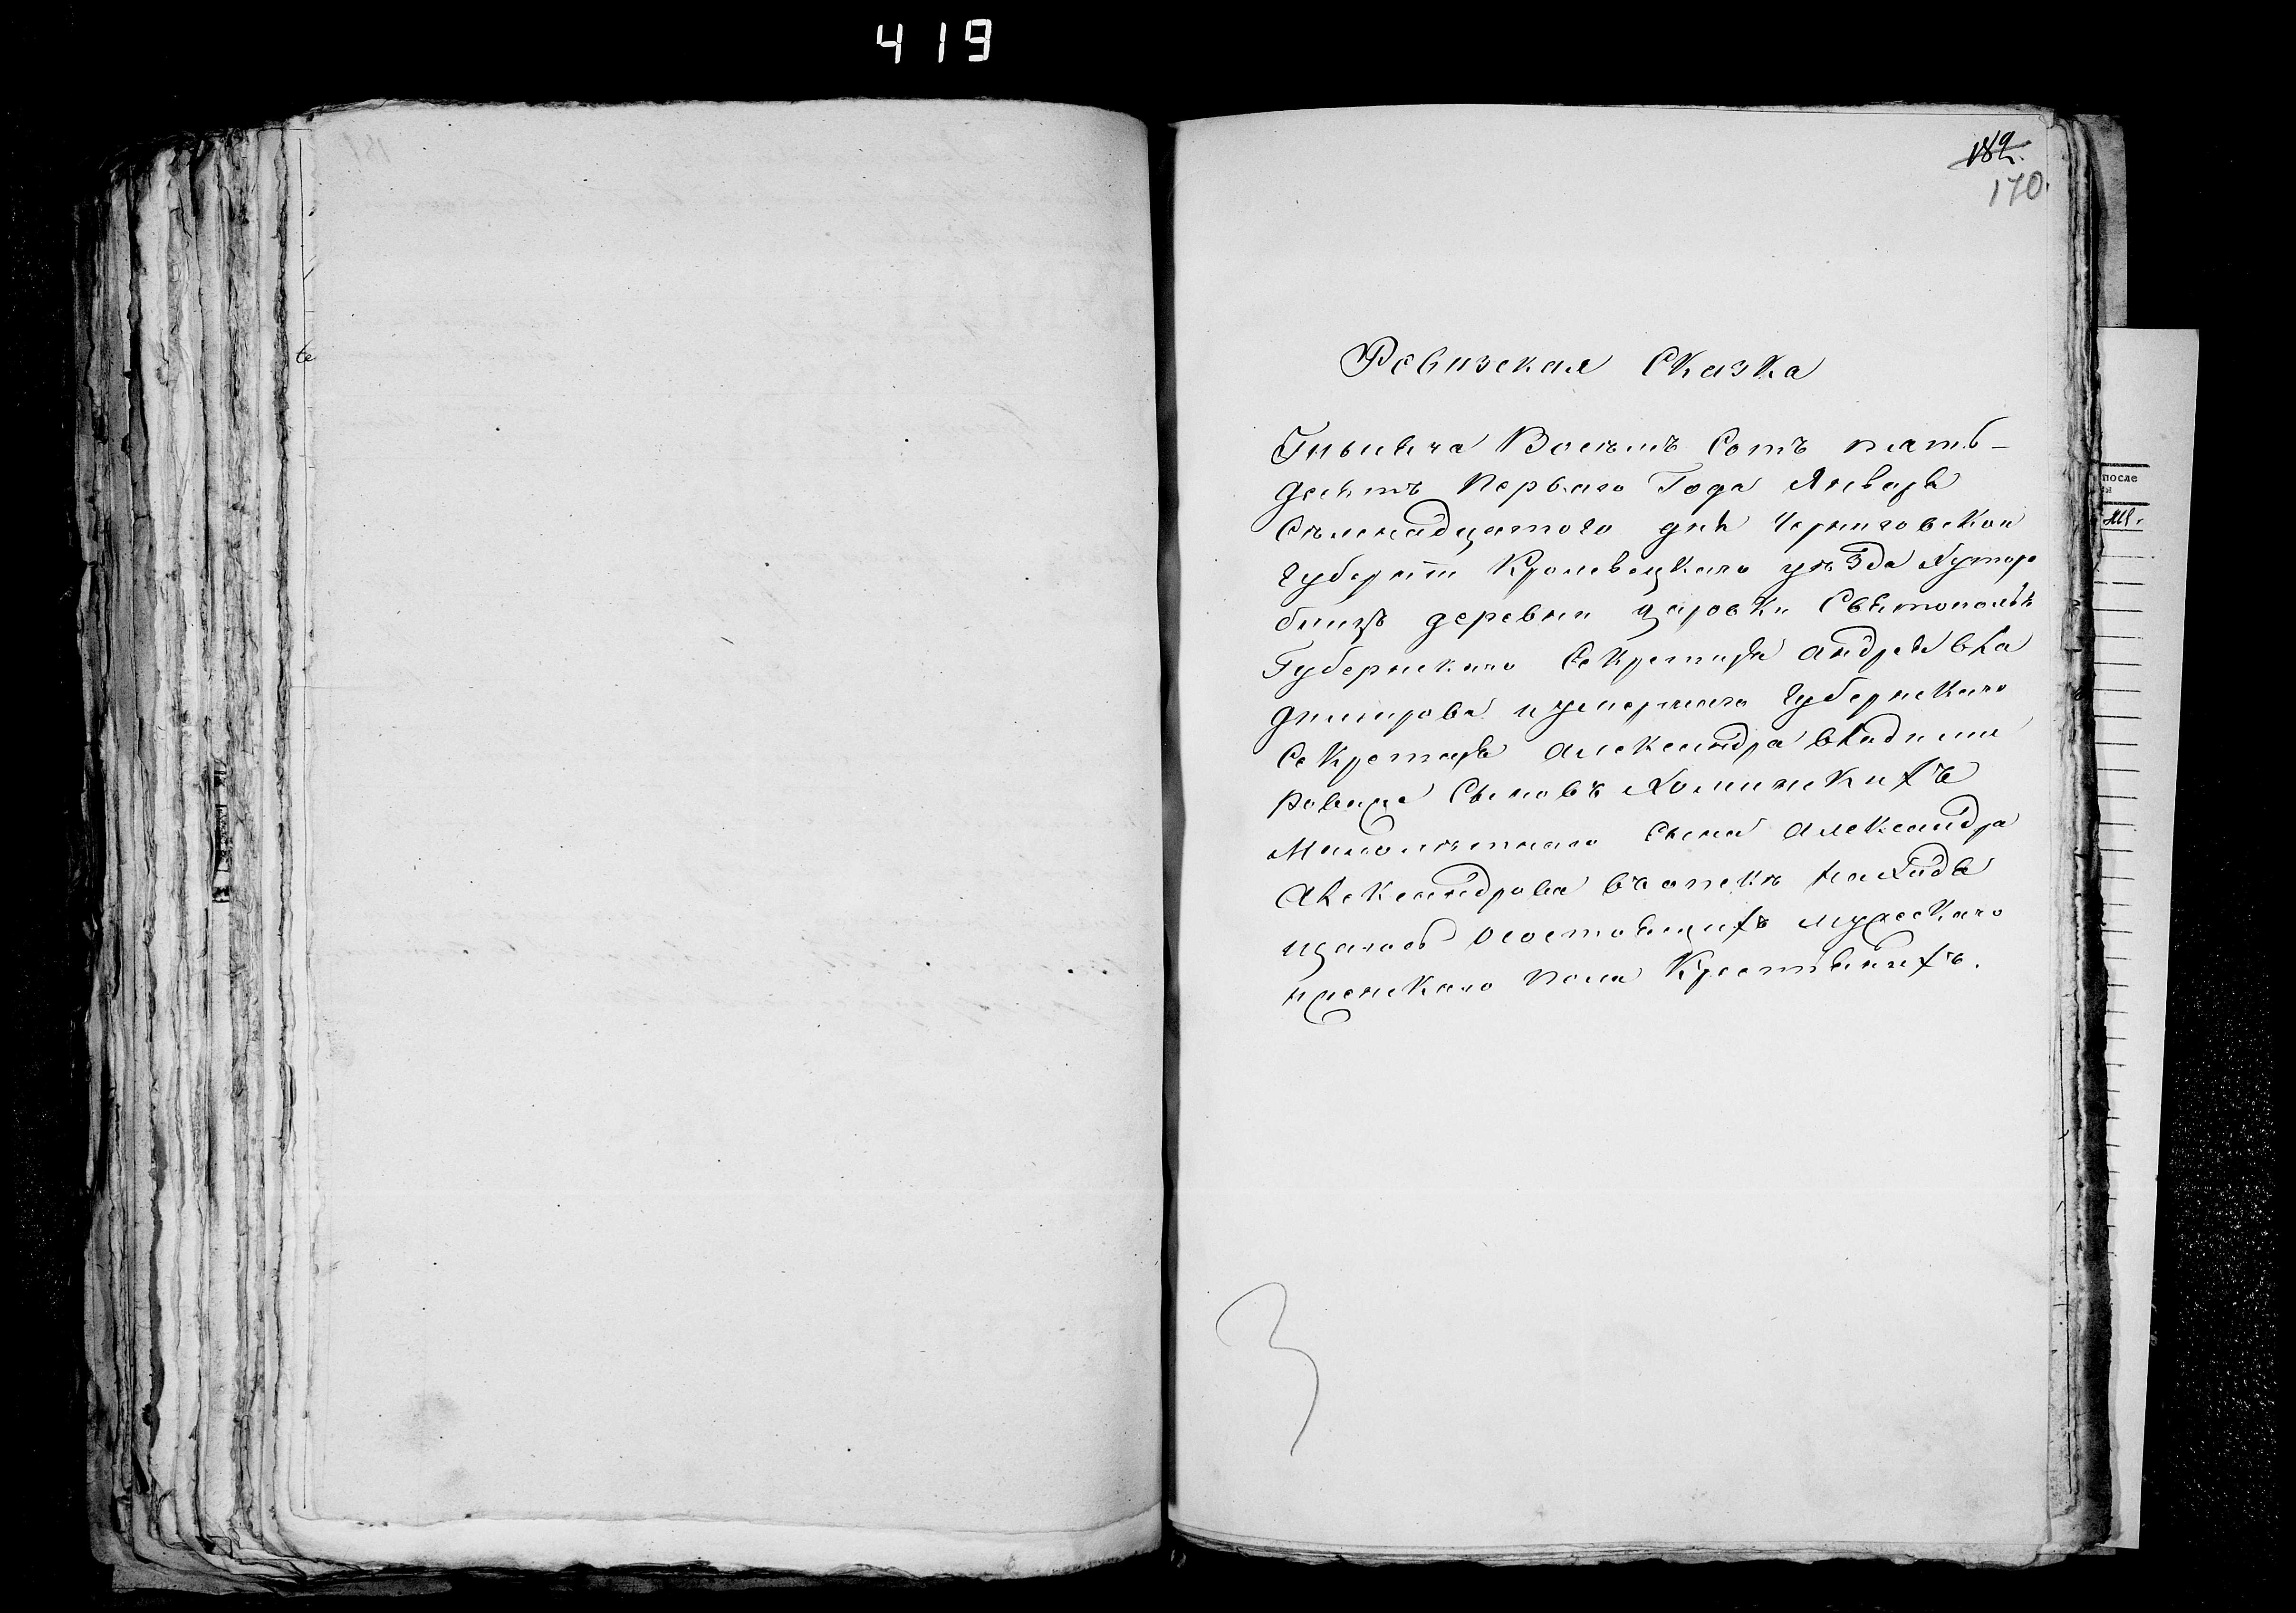 419
182.
170.
Ревизская Сказка
Тысяча Восѣмъ Сотъ пять-
десятъ перваго Года Января
Сѣмнадцатого дня Черниговской
Губерніи Кролевецкаго уѣзда Хуторо
деревни царовки
Губернскаго Секретаря андрея вла
димирова и умершаго Губернскаго
Секретаря александра владими
ровича Сыновъ Хоминскихъ
Малолѣтнаго Сына александра
александрова въ опекѣ находя
щагось осостоящихъ мужескаго
иженскаго пола Крестьянахъ.
3
после